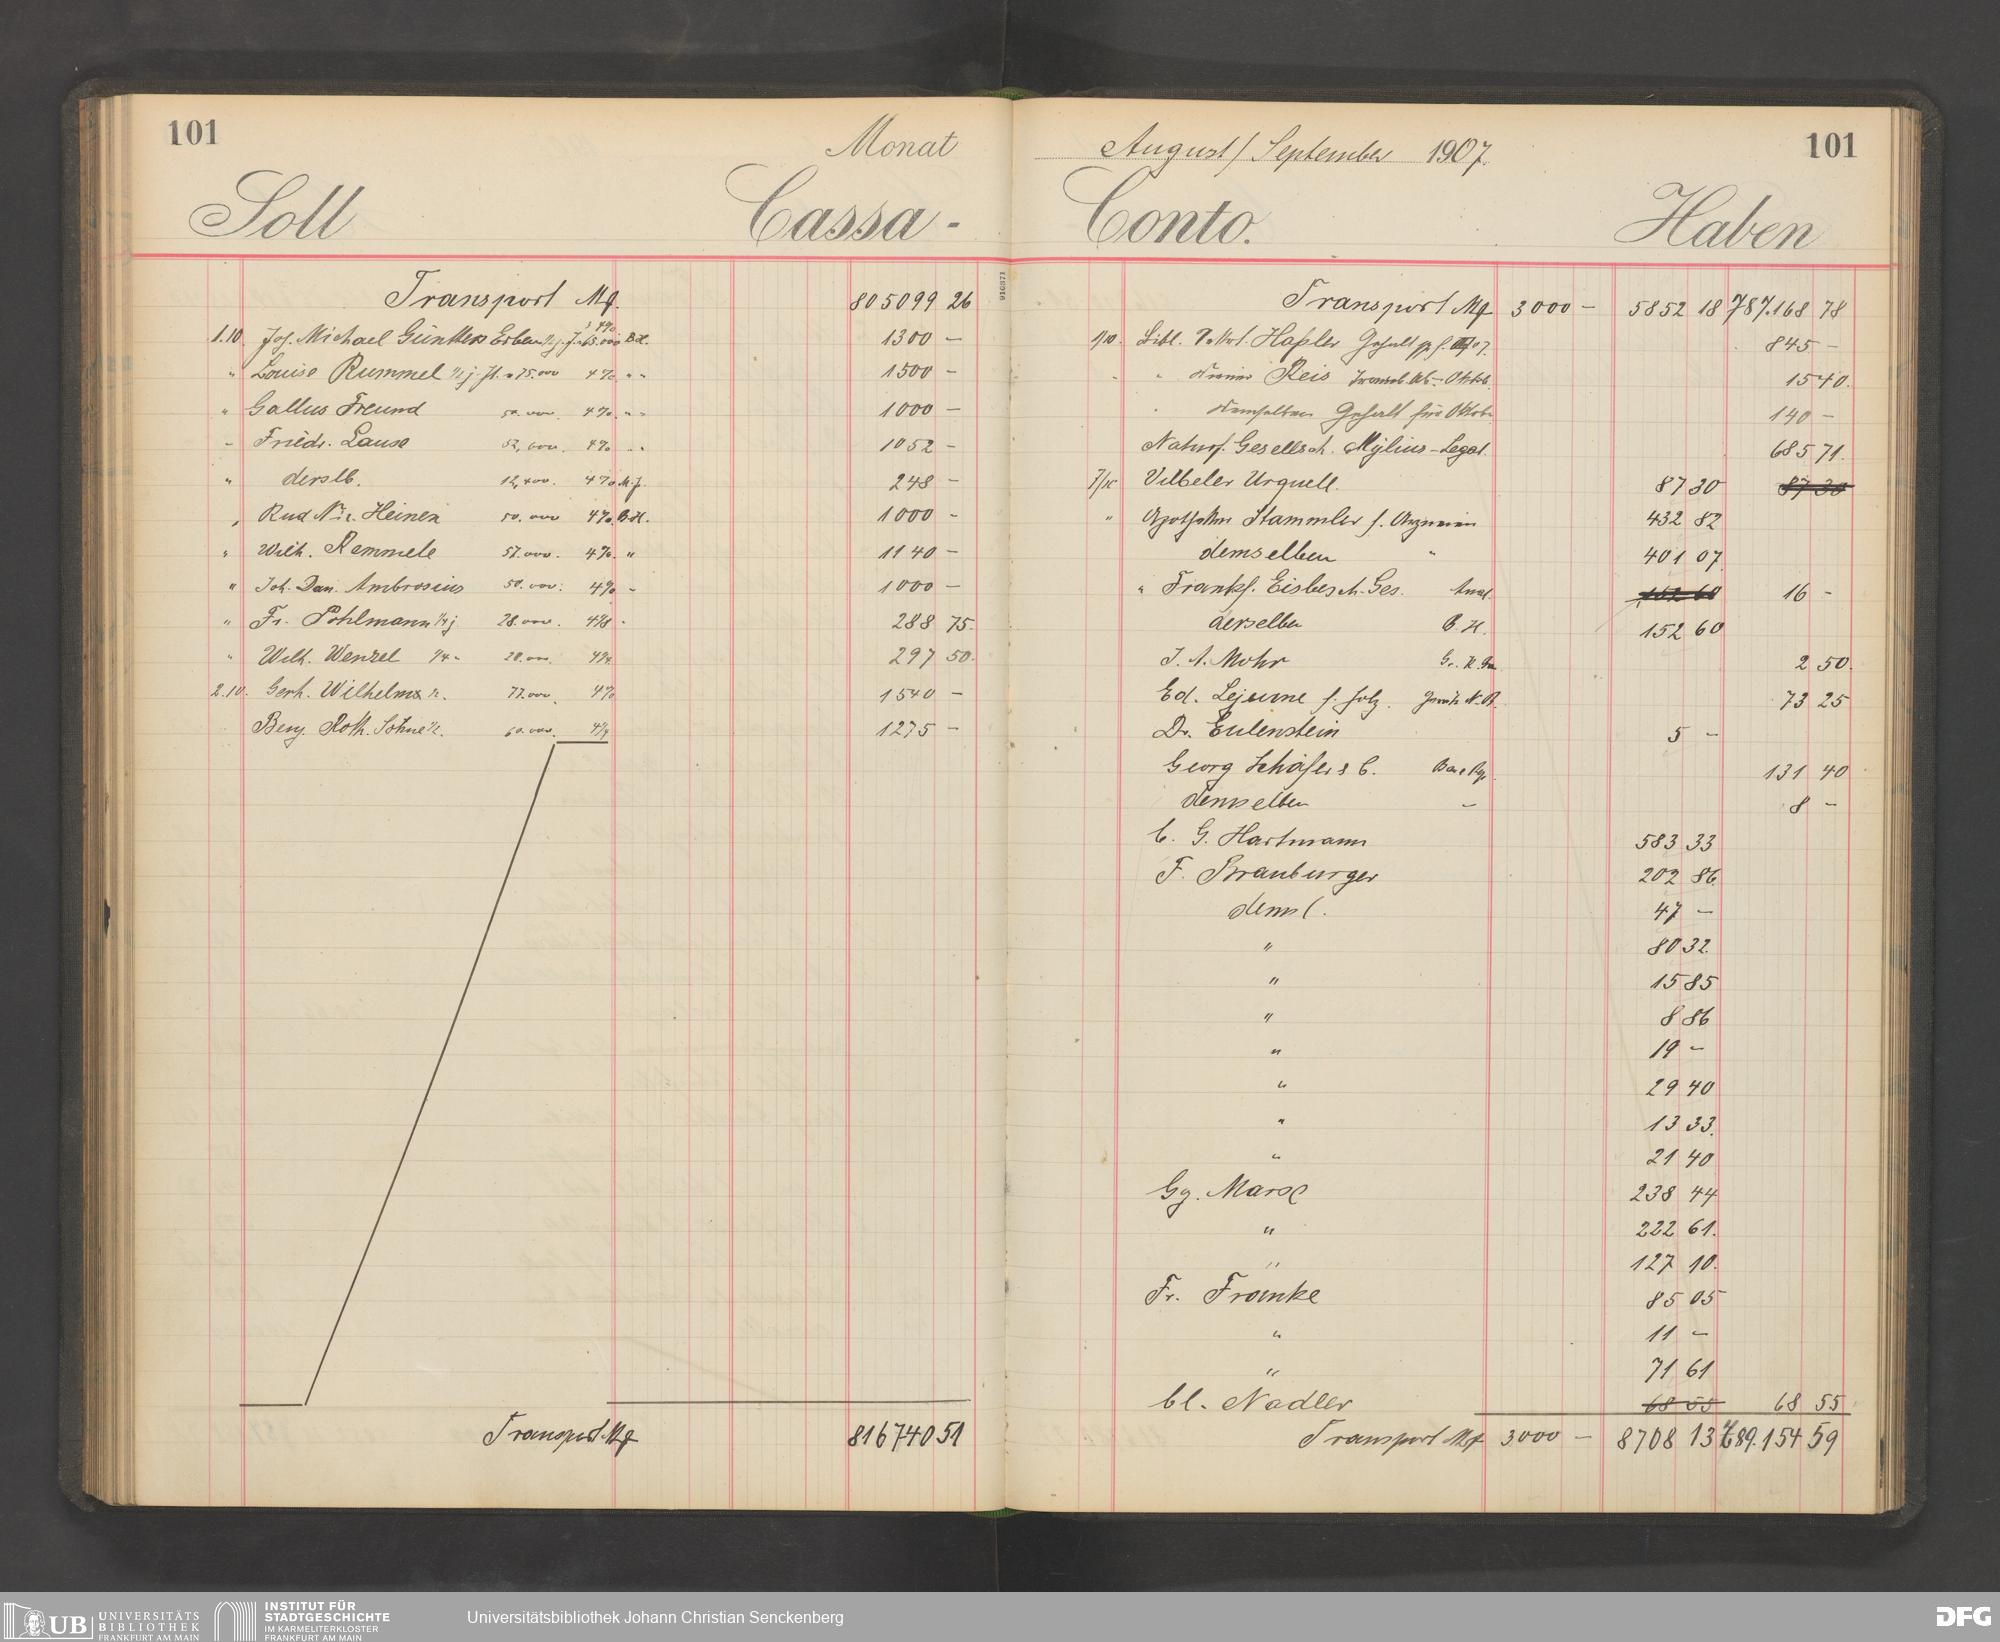 101
Monat
Soll
Cassa -
Transport Mq. 805099 26
1.10. Jos. Michael Günthers Erben ½ j. 65.000 4% B.H. 1300 —
" Louise Rummel ½ j. 75.000 4% " " 1500 —
" Gallus Freund 50.000. 4% " " 1000 —
" Friedr. Lause 52,600. 4% " " 1052 —
" derslb. 12,400. 4% M.J. 248 —
" Rud. Nic. Heinen 50.000 4% B.H. 1000 -
" Wilh. Remmele 57.000. 4% " 1140 —
" Joh. Dan. Ambrosius 50.000. 4% - 1000 —
" Fr. Pohlmann ¼ j 28.000. 288 75.
" Wilh. Wenzel ¼ " 28.000. 297 50.
2.10. Gerh. Wilhelms ½. 77.000. 4% 1540 —
Benj. Roth. Söhne ½. 60.000. 4¼ 1275 —
Transport Mq 816740 51
101
August/September 1907.
Conto.
Haben
Transport Mq 3000 — 5852 18 787.168 78
1/10. Bibl. 845 —
" Reis 1540.
demselben Gehalt für Oktob. 140 —
Naturf. Gesellsch. Mylius-Legat. 685 71.
7/10 Vilbeler Urquell. 87 30 87 30
" Apotheker Stammler f. Arzneien 432 82
demselben " 401 07
" Frankf. Eisbesch. Ges. 152 60 16 -
derselben B.H. 152 60
J. A. Mohr 2 50.
Ed. Lejeune f. Holz. 73 25
Dr. Eulenstein 5 —
Georg Schäfer & C. 131 40
demselben — 8 —
C. G. Hartmann 583 33
F. Branburger 202 86.
dems. 47 —
" 80 32.
" 15 85
" 8 86
" 19 —
" 29 40
" 13 33.
" 21 40
Gg. Marx 238 44
" 222 61.
" 127 10.
Fr. Franke 85 05
" 11 —
" 71 61
Cl. Nadler 68 55 68 55
Transport Mq 3000 — 8708 13 789.154 59
916371
UB UNIVERSITÄTS
BIBLIOTHEK
FRANKFURT AM MAIN
INSTITUT FÜR
STADTGESCHICHTE
IM KARMELITERKLOSTER
FRANKFURT AM MAIN
Universitätsbibliothek Johann Christian Senckenberg
DFG